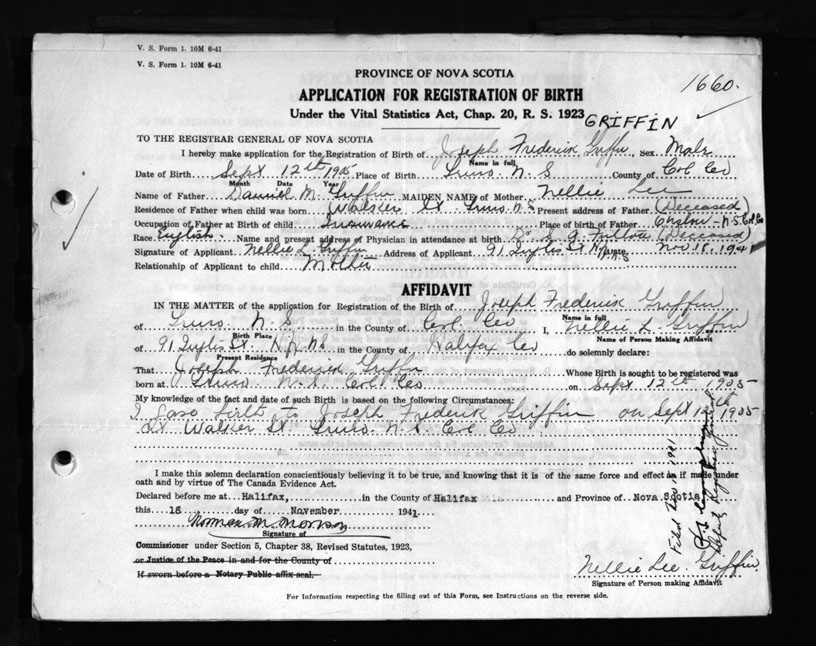 V. S. Form 1. 10M 6-41
V. S. Form 1. 10M 6-41
PROVINCE OF NOVA SCOTIA
1660.
APPLICATION FOR REGISTRATION OF BIRTH
Under the Vital Statistics Act, Chap. 20, R. S. 1923
GRIFFIN
TO THE REGISTRAR GENERAL OF NOVA SCOTIA
I hereby make application for the Registration of Birth of Joseph Frederick Griffin Sex Male
Name in full
Date of Birth Sept 12th 1905 Place of Birth Truro N. S County of Col Co
Month Date Year
Name of Father Daniel M. Griffin MAIDEN NAME of Mother Nellie Lee
Residence of Father when child was born Walker St Truro N.S Present address of Father (Deceased)
Occupation of Father at Birth of child Insurance Place of Birth of Father Onslow N.S Col. Co
Race English. Name and present address of Physician in attendance at birth Dr (Deceased)
Signature of Applicant Nellie L. Griffin Address of Applicant 91 St Nov 18. 1941
Relationship of Applicant to child Mother
AFFIDAVIT
IN THE MATTER of the application for Registration of the Birth of Joseph Frederick Griffin
Name in full
of Truro N. S in the County of Col. Co I, Nellie L. Griffin
Birth Place Name of Person Making Affidavit
of 91 St. N.S in the County of Halifax Co do solemnly declare:
Present Residence
That Joseph Frederick Griffin Whose Birth is sought to be registered was
born at Truro N.S. Col Co on Sept 12th 1905
My knowledge of the fact and date of such Birth is based on the following Circumstances:
I gave birth to Joseph Frederick Griffin on Sept 12th 1905
At Walker St. Truro N.S. Col Co
I make this solemn declaration conscientiously believing it to be true, and knowing that it is of the same force and effect as if made under
oath and by virtue of The Canada Evidence Act.
Declared before me at Halifax, in the County of Halifax and Province of Nova Scotia
this 18 day of November 1941
Norman M. Morison
Signature of
Commissioner under Section 5, Chapter 38, Revised Statutes, 1923,
or Justice of the Peace in and for the County of
If sworn before a Notary Public affix seal.
Nellie Lee Griffin
Signature of Person making Affidavit
For Information respecting the filling out of this Form, see Instructions on the reverse side.